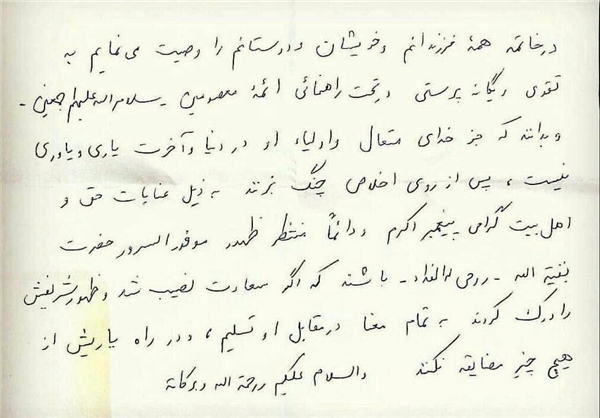 در خاتمه همهٔ فرزندانم و خویشان و دوستانم را وصیت می‌نمایم به
تقوی و یگانه پرستی و تحت راهنمائی ائمهٔ معصومین - سلام الله علیهم اجمعین -
و بدانند که جز خدای متعال و اولیاء او در دنیا و آخرت یاری و یاوری
نیست، پس از روی اخلاص چنگ بزنند به ذیل عنایات حق و
اهل بیت گرامی پیغمبر اکرم و دائماً منتظر ظهور موفور السرور حضرت
بقیة الله - روحی له الفداء - باشند که اگر سعادت نصیب شد و ظهور شریفش
را درک کردند به تمام معنا در مقابل او تسلیم، و در راه یاریش از
هیچ چیز مضایقه نکنند والسلام علیکم ورحمة الله وبرکاته